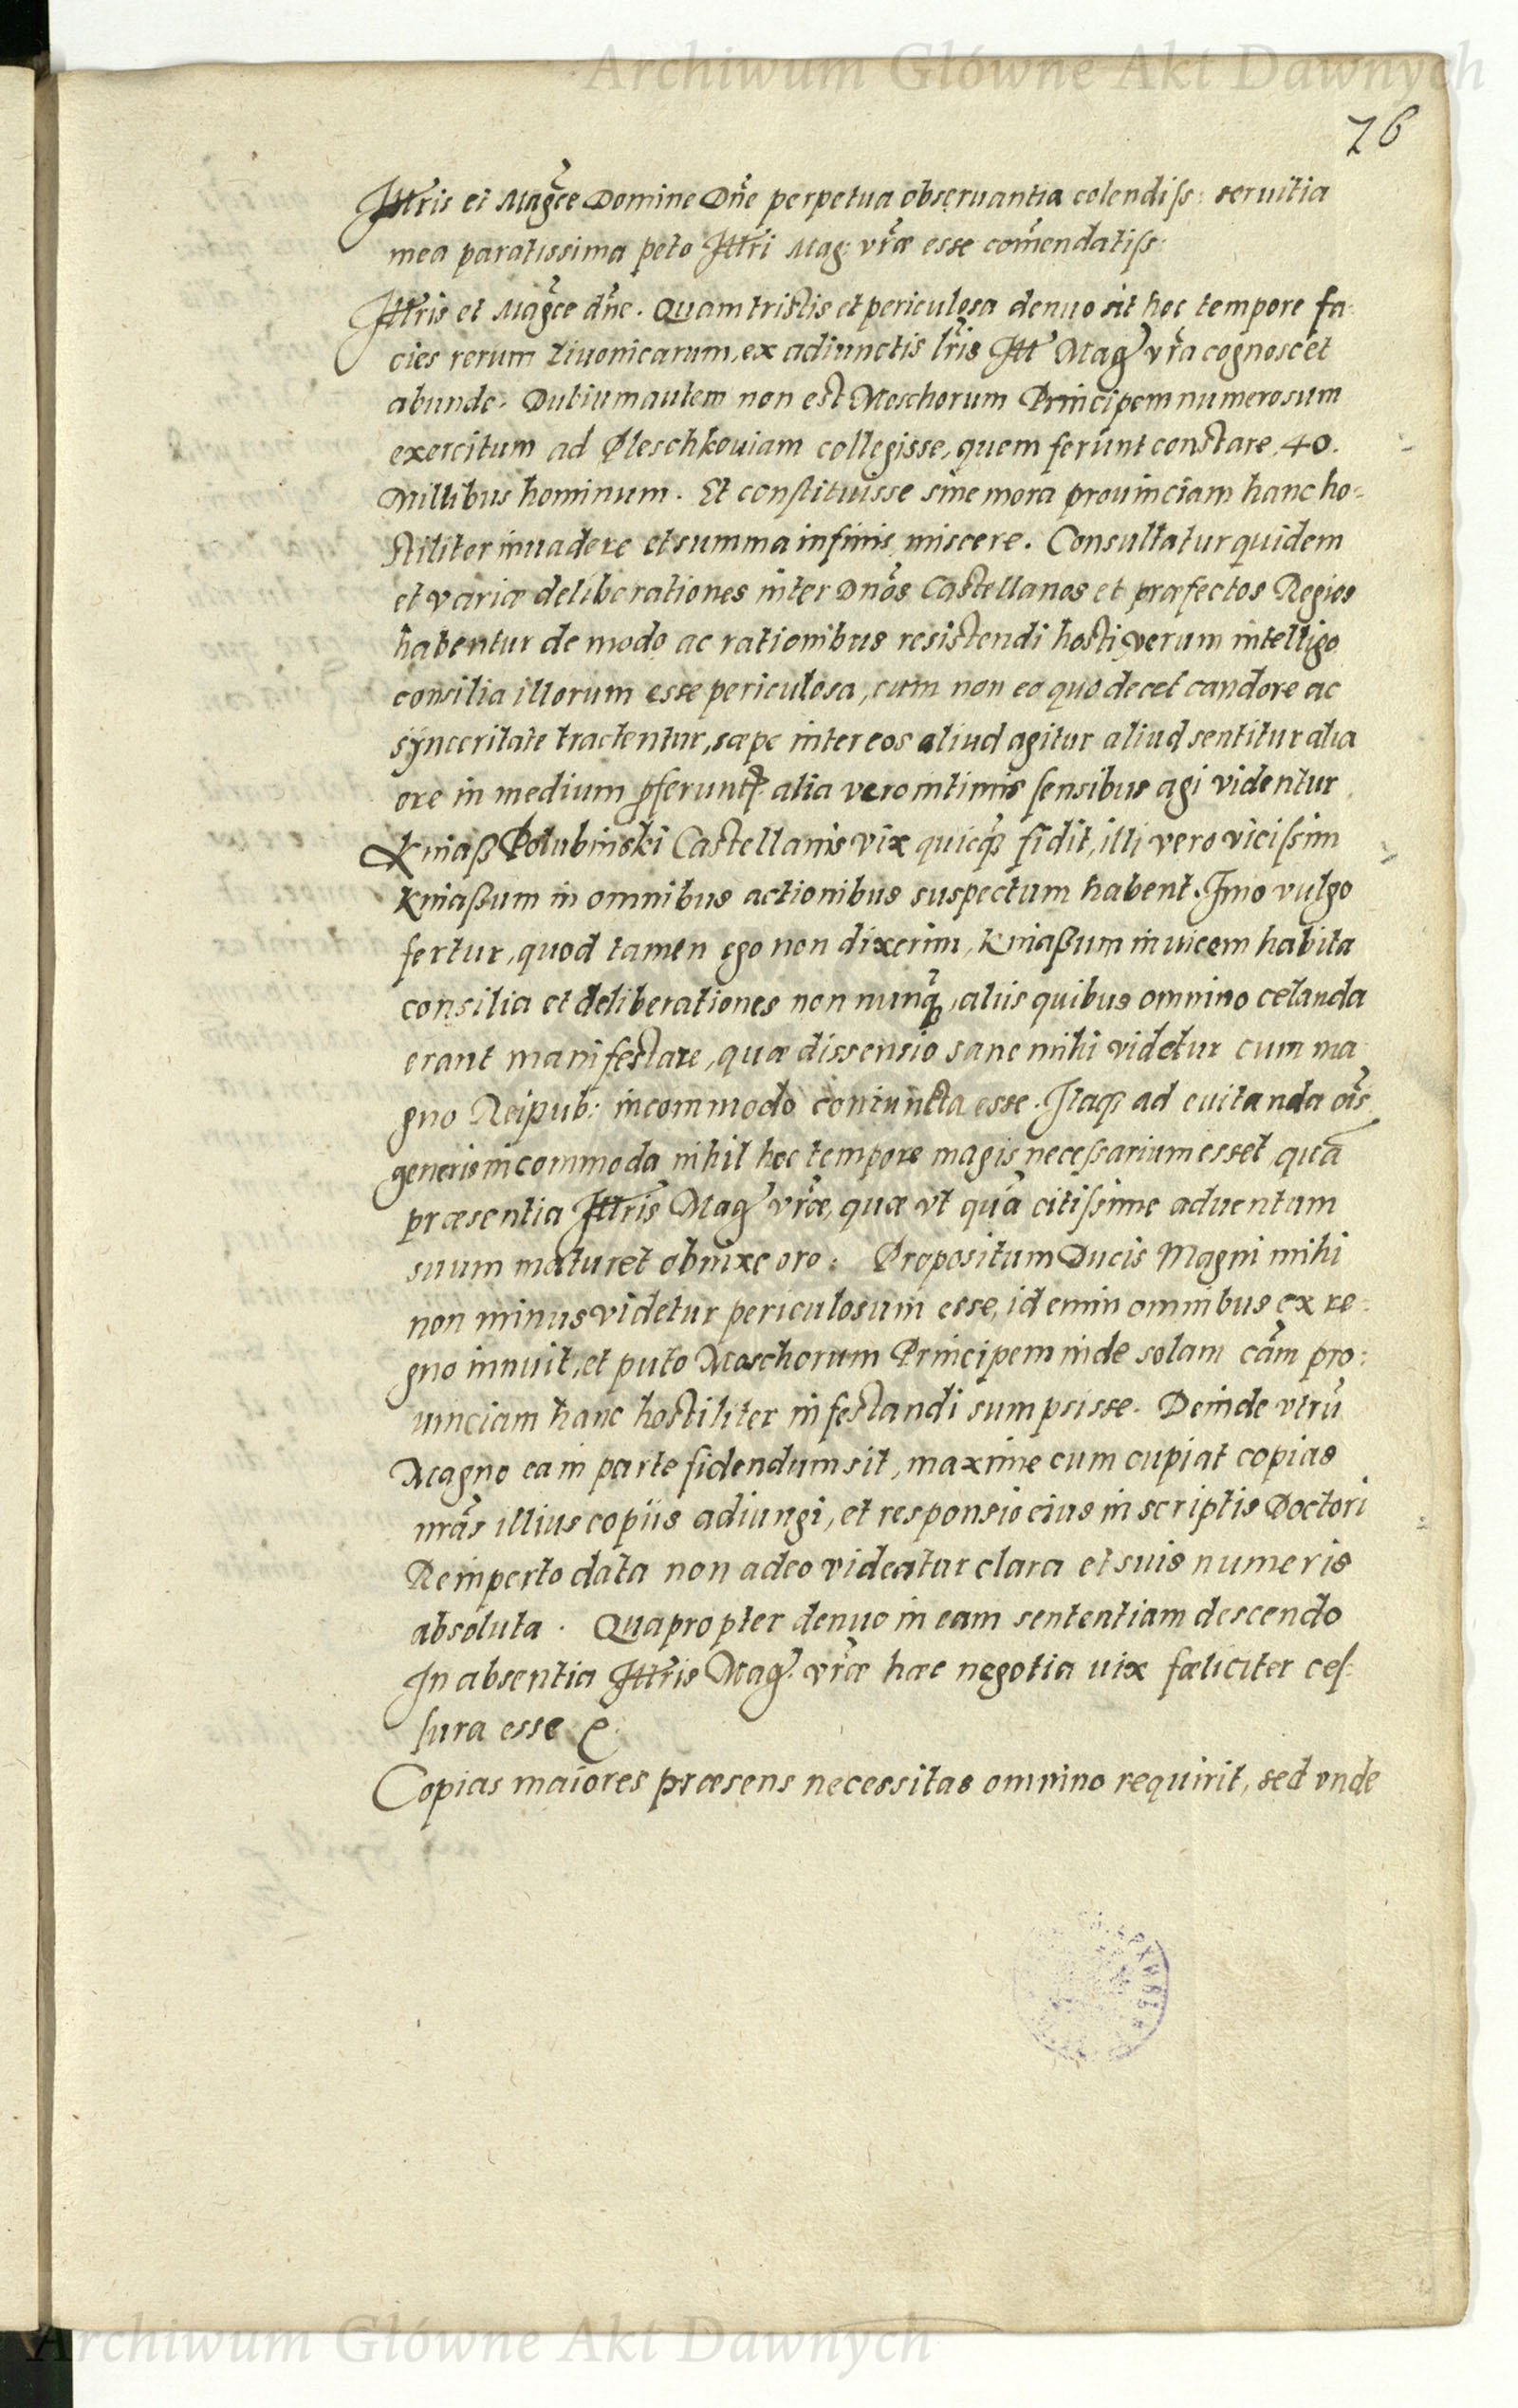 Archiwum Główne Akt Dawnych
76
Illris et Magce Domine Dne perpetua obseruantia colendiss: seruitia
mea paratissima peto Illri Mag: vræ esse comendatiss:
Illris et Magce dne. Quam tristis et periculosa denuo sit hoc tempore fa-
cies rerum Liuonicarum, ex adiunctis lris Ill Mag vra cognoscet
abunde. Dubium autem non est Moschorum Principem numerosum
exercitum ad Pleschkouiam collegisse, quem ferunt constare 40.
Millibus hominum. Et constituisse sine mora prouinciam hanc ho=
stiliter inuadere et summa infimis miscere. Consultatur quidem
et variæ deliberationes inter Dnos Castellanos et præfectos Regios
habentur de modo ac rationibus resistendi hosti, verum intelligo
consilia illorum esse periculosa, cum non eo quo decet candore ac
synceritate tractentur, sæpe inter eos aliud agitur aliud sentitur alia
ore in medium pferuntr alia vero intimis sensibus agi videntur
Kniaß Polubinski Castellanis vix quicq fidit, illi vero vicissim
Kniaßum in omnibus actionibus suspectum habent. Imo vulgo
fertur, quod tamen ego non dixerim, Kniaßum inuicem habita
consilia et deliberationes non nunq, aliis quibus omnino celanda
erant manifestare, quæ dissensio sane mihi videtur cum ma
gno Reipub: incommodo coniuncta esse. Itaq ad euitanda ois
generis incommoda nihil hoc tempore magis necessarium esset quā
præsentia Illris Mag vræ, quæ vt quā citissime aduentum
suum maturet obnixe oro: Propositum Ducis Magni mihi
non minus videtur periculosum esse, id enim omnibus ex re=
gno innuit, et puto Moschorum Principem inde solam cām pro:
uinciam hanc hostiliter infestandi sumpsisse. Deinde vtrū
Magno ea in parte fidendum sit, maxime cum cupiat copias
nrās illius copiis adiungi, et responsio eius in scriptis Doctori
Remperto data non adeo videatur clara et suis numeris
absoluta. Quapropter denuo in eam sententiam descendo
In absentia Illris Mag. vræ hæc negotia uix fæliciter ces-
sura esse &.
Copias maiores præsens necessitas omnino requirit, sed vnde
Archiwum Główne Akt Dawnych